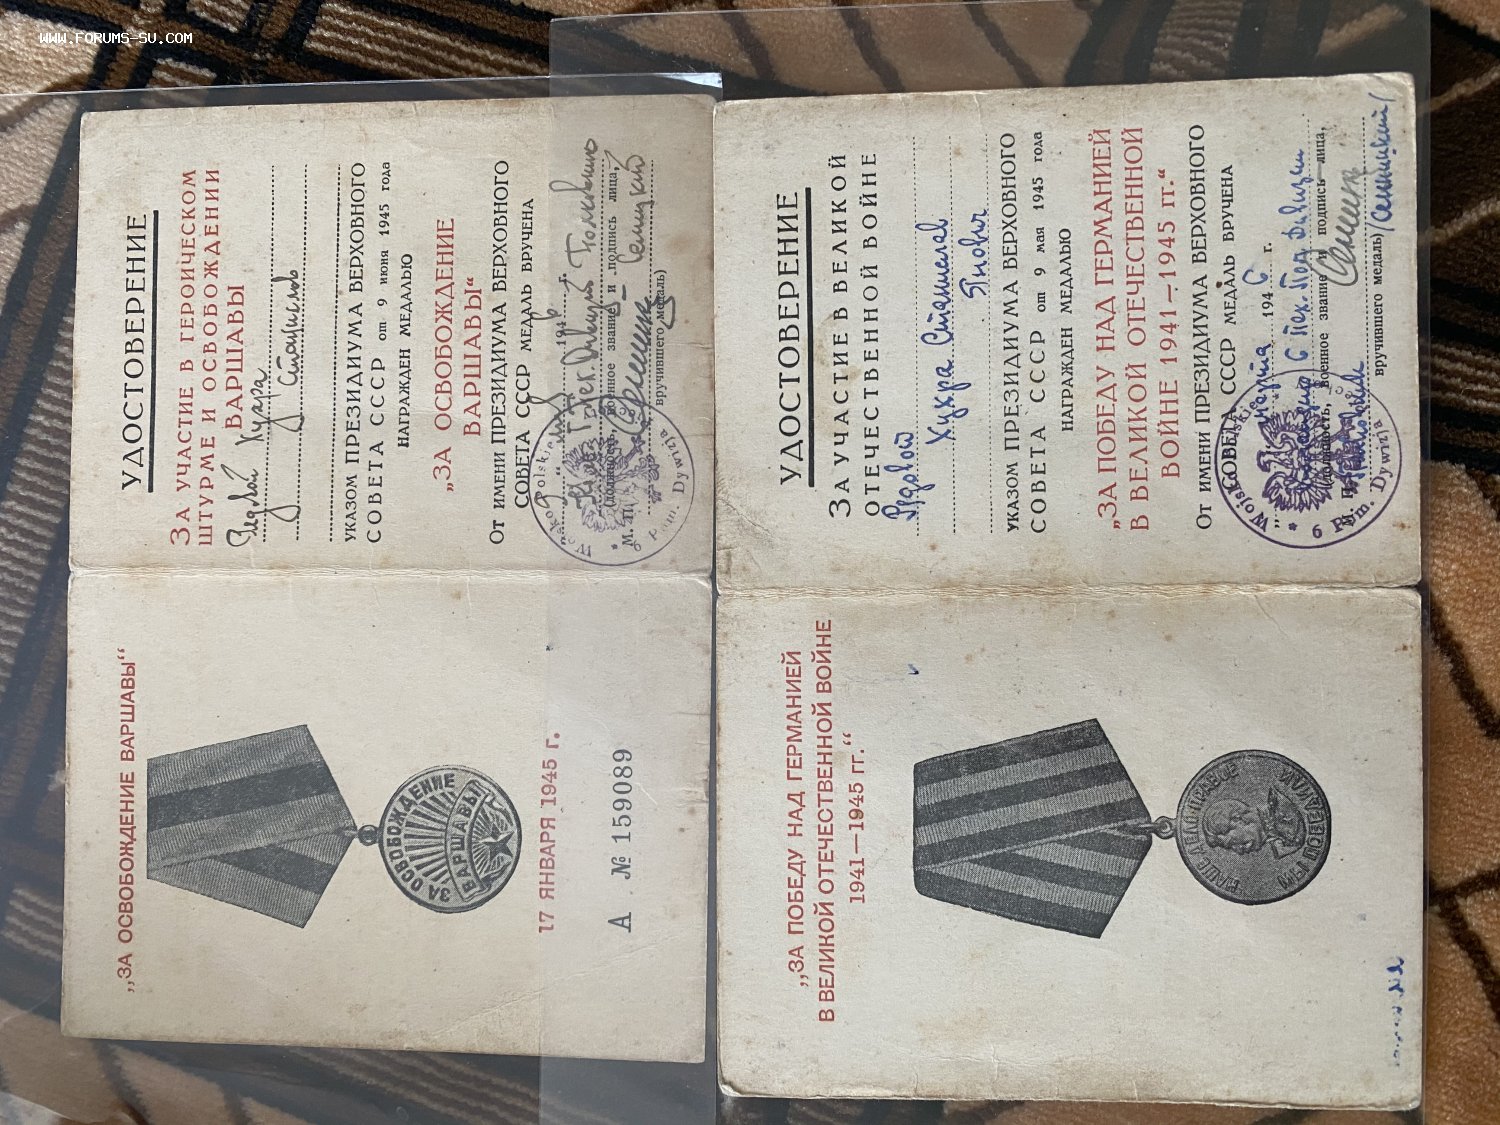 WWW.FORUMS-SU.COM
„ЗА ОСВОБОЖДЕНИЕ ВАРШАВЫ“
ЗА ОСВОБОЖДЕНИЕ
ВАРШАВЫ
17 ЯНВАРЯ 1945 г.
А № 159089
УДОСТОВЕРЕНИЕ
ЗА УЧАСТИЕ В ГЕРОИЧЕСКОМ
ШТУРМЕ И ОСВОБОЖДЕНИИ
ВАРШАВЫ
Рядовой Кухра
УКАЗОМ ПРЕЗИДИУМА ВЕРХОВНОГО
СОВЕТА СССР от 9 июня 1945 года
НАГРАЖДЕН МЕДАЛЬЮ
„ЗА ОСВОБОЖДЕНИЕ
ВАРШАВЫ“
От ИМЕНИ ПРЕЗИДИУМА ВЕРХОВНОГО
СОВЕТА СССР МЕДАЛЬ ВРУЧЕНА
194 г.
(должность, военное звание и подпись лица,
М. П.
вручившего медаль)
Wojsko Polskie * 6 Pom. Dywizja
„ЗА ПОБЕДУ НАД ГЕРМАНИЕЙ
В ВЕЛИКОЙ ОТЕЧЕСТВЕННОЙ ВОЙНЕ
1941—1945 гг.“
НАШЕ ДЕЛО ПРАВОЕ
МЫ ПОБЕДИЛИ
УДОСТОВЕРЕНИЕ
ЗА УЧАСТИЕ В ВЕЛИКОЙ
ОТЕЧЕСТВЕННОЙ ВОЙНЕ
Рядовой
Кухра Станислав
Янович
УКАЗОМ ПРЕЗИДИУМА ВЕРХОВНОГО
СОВЕТА СССР от 9 мая 1945 года
НАГРАЖДЕН МЕДАЛЬЮ
„ЗА ПОБЕДУ НАД ГЕРМАНИЕЙ
В ВЕЛИКОЙ ОТЕЧЕСТВЕННОЙ
ВОЙНЕ 1941—1945 гг.“
От ИМЕНИ ПРЕЗИДИУМА ВЕРХОВНОГО
СОВЕТА СССР МЕДАЛЬ ВРУЧЕНА
марта 1946 г.
6 Пех. Дивизии
(должность, военное звание и подпись лица,
М. П.
вручившего медаль)
Wojsko Polskie * 6 Pom. Dywizja